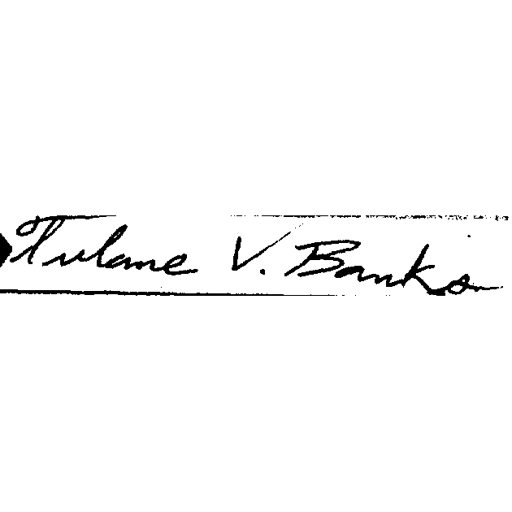 Tulane V. Banks